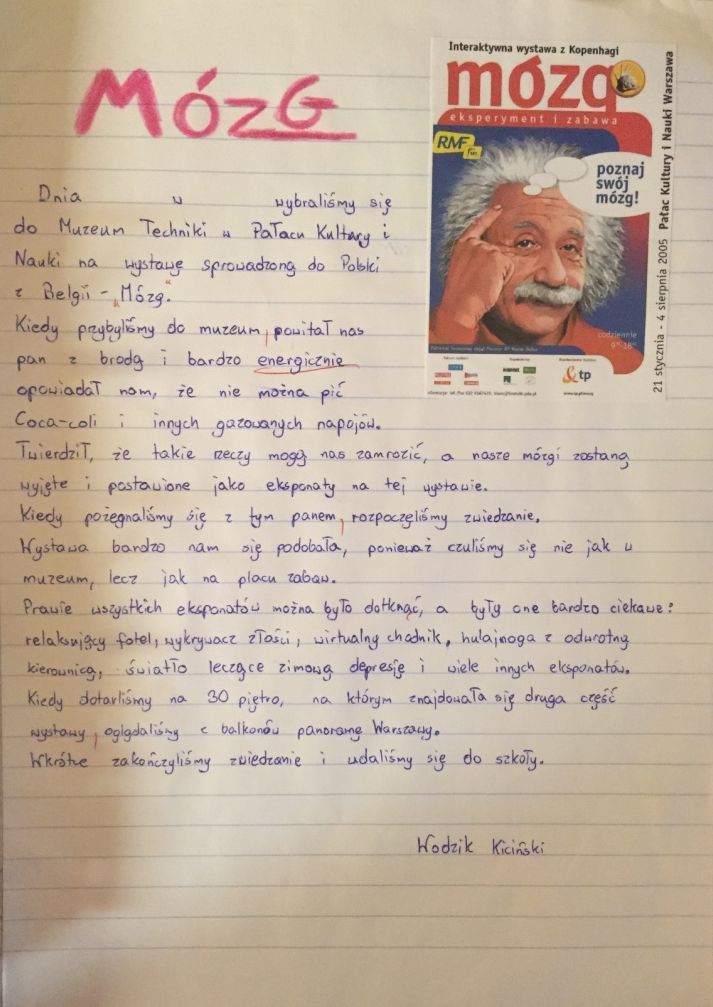 MózG
Interaktywna wystawa z Kopenhagi
mózg
eksperyment i zabawa
RMF fm
poznaj
swój
mózg!
codziennie
9⁰⁰-18⁰⁰
tp
21 stycznia - 4 sierpnia 2005 Pałac Kultury i Nauki Warszawa
Dnia w wybraliśmy się
do Muzeum Techniki w Pałacu Kultury i
Nauki na wystawę sprowadzoną do Polski
z Belgii - „Mózg."
Kiedy przybyliśmy do muzeum, powitał nas
pan z brodą i bardzo energicznie
opowiadał nam, że nie można pić
Coca-coli i innych gazowanych napojów.
Twierdził, że takie rzeczy mogą nas zamrozić, a nasze mózgi zostaną
wyjęte i postawione jako eksponaty na tej wystawie.
Kiedy pożegnaliśmy się z tym panem, rozpoczęliśmy zwiedzanie.
Wystawa bardzo nam się podobała, ponieważ czuliśmy się nie jak w
muzeum, lecz jak na placu zabaw.
Prawie wszystkich eksponatów można było dotknąć, a były one bardzo ciekawe:
relaksujący fotel, wykrywacz złości, wirtualny chodnik, hulajnoga z odwrotną
kierownicą, światło leczące zimową depresję i wiele innych eksponatów.
Kiedy dotarliśmy na 30 piętro, na którym znajdowała się druga część
wystawy, oglądaliśmy z balkonów panoramę Warszawy.
Wkrótce zakończyliśmy zwiedzanie i udaliśmy się do szkoły.
Wodzik Kiciński